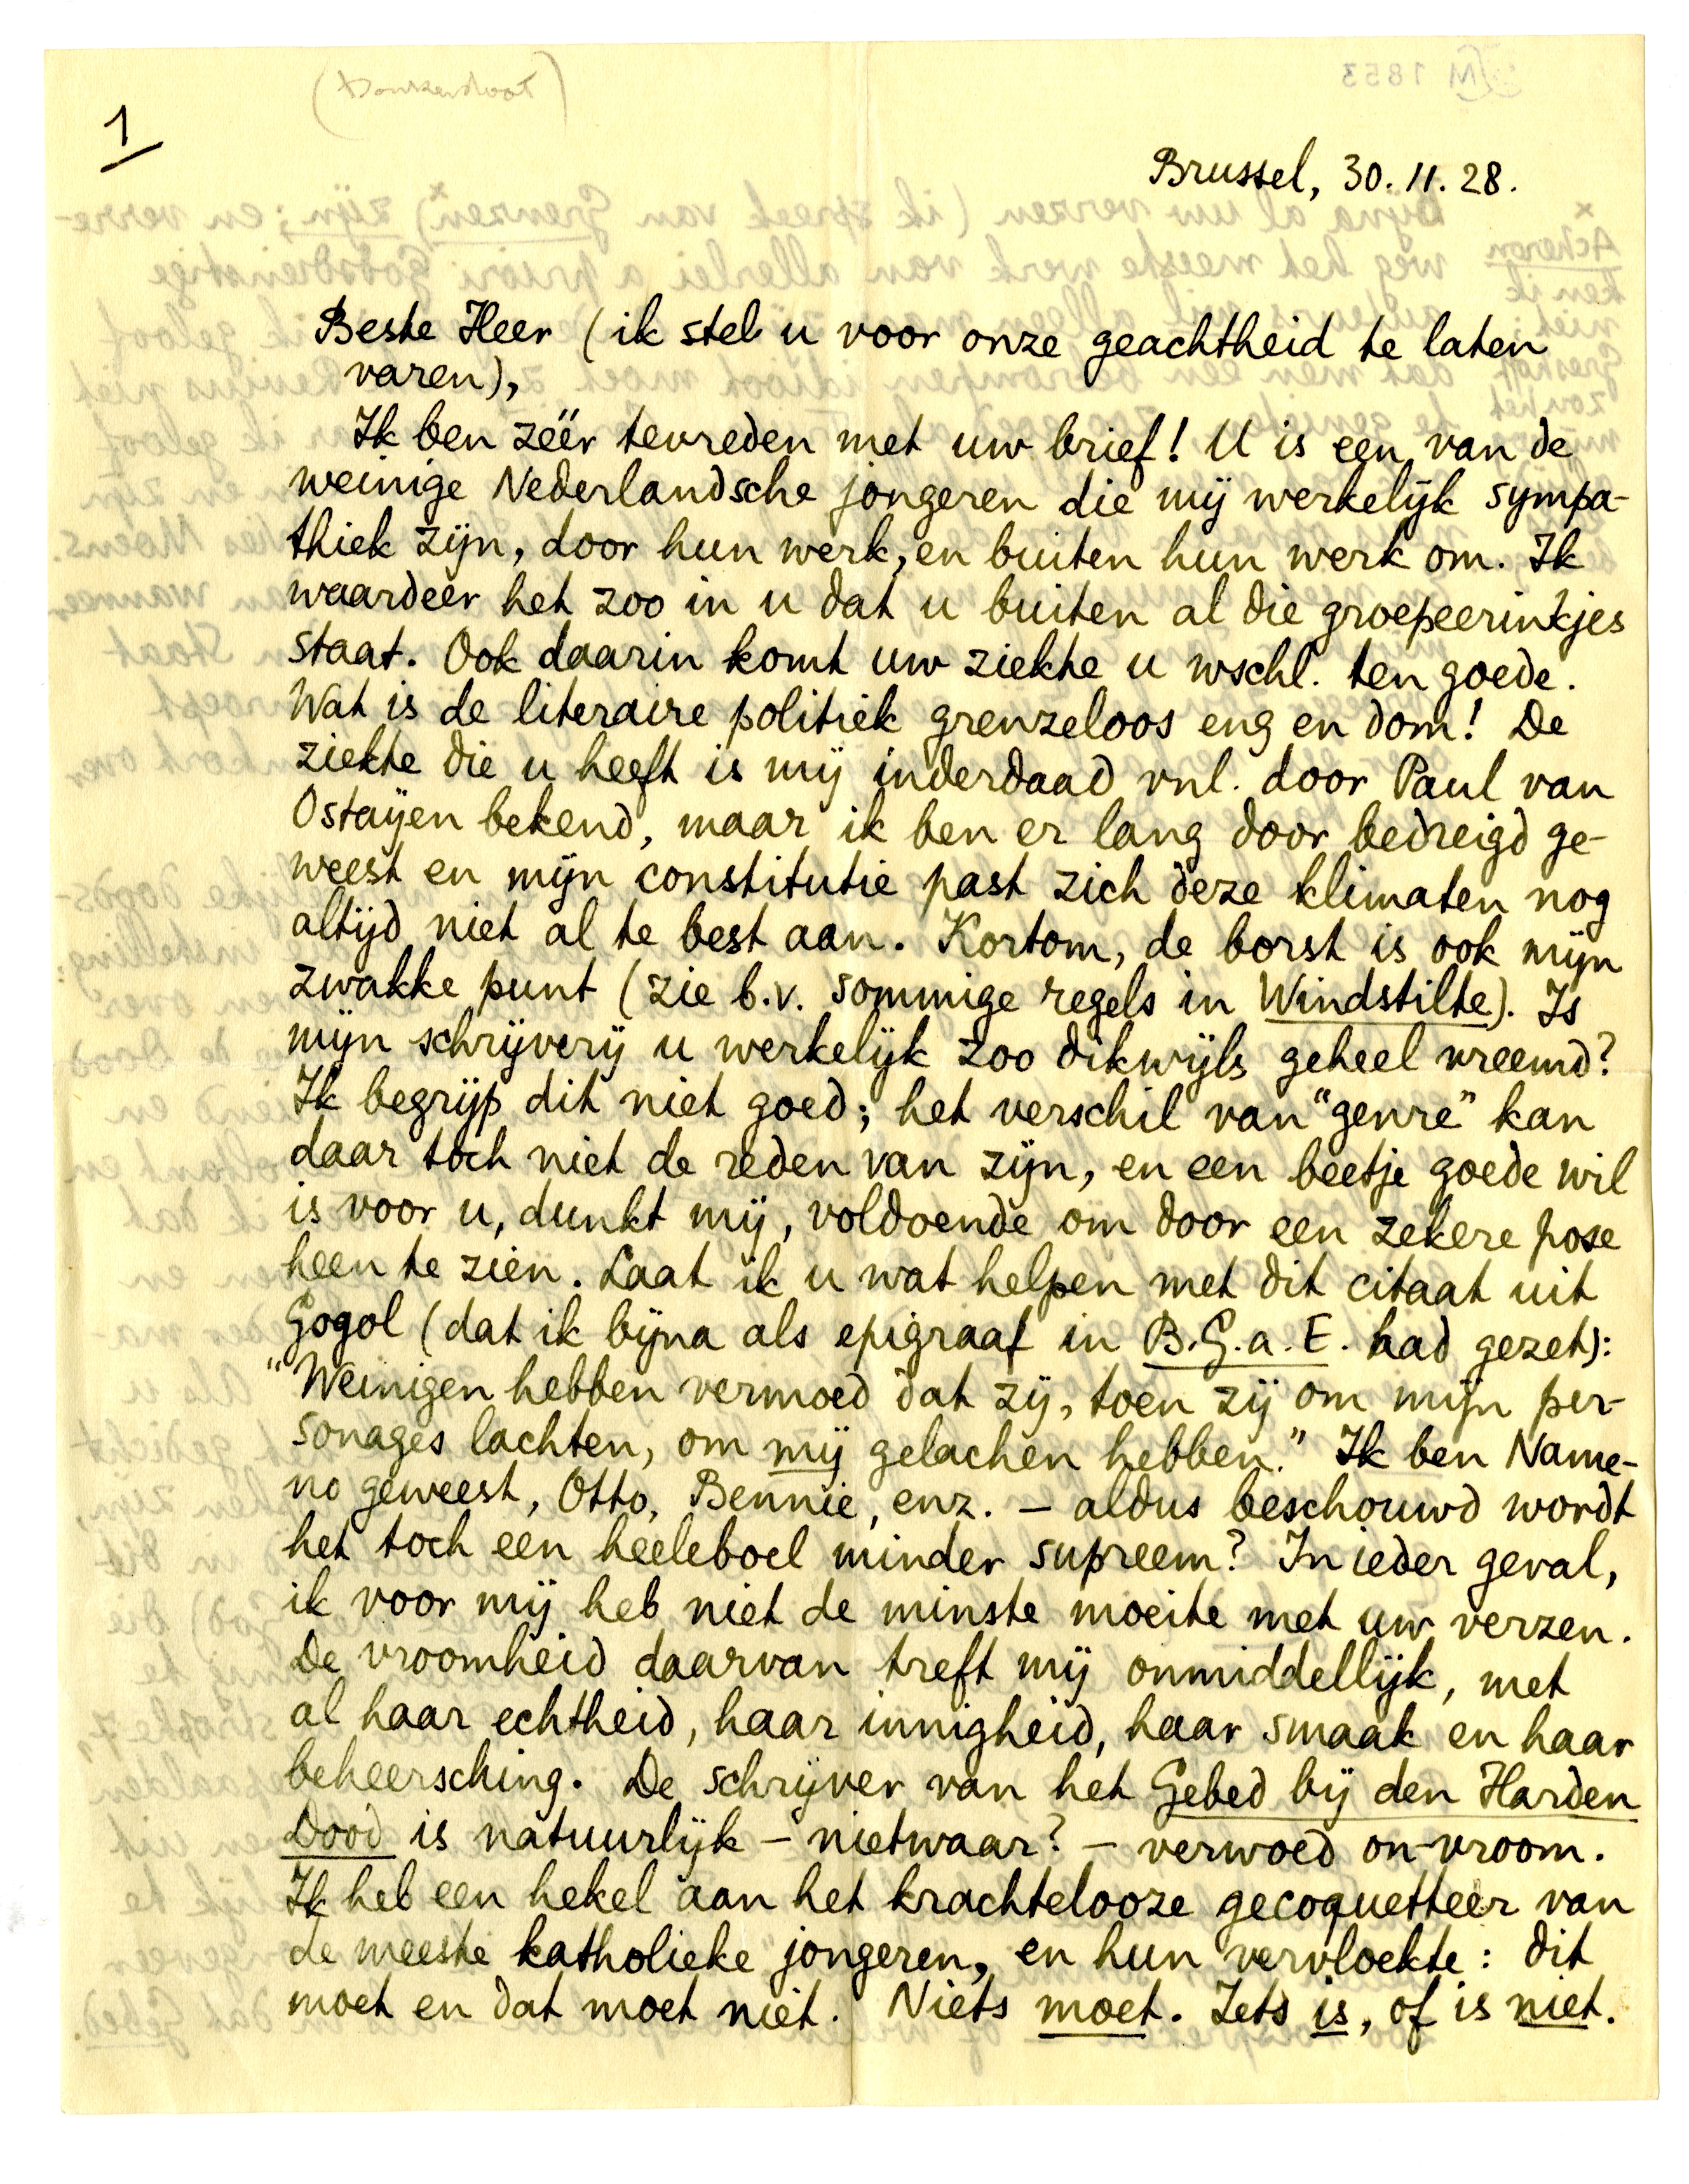 (Donkersloot)
M 1853
1
Brussel, 30.11.28.
Beste Heer (ik stel u voor onze geachtheid te laten
varen),
Ik ben zéér tevreden met uw brief! U is een van de
weinige Nederlandsche jongeren die mij werkelijk sympa-
thiek zijn, door hun werk, en buiten hun werk om. Ik
waardeer het zoo in u dat u buiten al die groepeerinkjes
staat. Ook daarin komt uw ziekte u wschl. ten goede.
Wat is de literaire politiek grenzeloos eng en dom! De
ziekte die u heeft is mij inderdaad vnl. door Paul van
Ostayen bekend, maar ik ben er lang door bedreigd ge-
weest en mijn constitutie past zich deze klimaten nog
altijd niet al te best aan. Kortom, de borst is ook mijn
zwakke punt (zie b.v. sommige regels in Windstilte). Is
mijn schrijverij u werkelijk zoo dikwijls geheel vreemd?
Ik begrijp dit niet goed; het verschil van "genre" kan
daar toch niet de reden van zijn, en een beetje goede wil
is voor u, dunkt mij, voldoende om door een zekere pose
heen te zien. Laat ik u wat helpen met dit citaat uit
Gogol (dat ik bijna als epigraaf in B.G.a.E. had gezet):
"Weinigen hebben vermoed dat zij, toen zij om mijn per-
sonages lachten, om mij gelachen hebben." Ik ben Name-
no geweest, Otto, Bennie, enz. – aldus beschouwd wordt
het toch een heeleboel minder supreem? In ieder geval,
ik voor mij heb niet de minste moeite met uw verzen.
De vroomheid daarvan treft mij onmiddellijk, met
al haar echtheid, haar innigheid, haar smaak en haar
beheersching. De schrijver van het Gebed bij den Harden
Dood is natuurlijk – nietwaar? – verwoed on-vroom.
Ik heb een hekel aan het krachtelooze gecoquetteer van
de meeste katholieke jongeren, en hun vervloekte: dit
moet en dat moet niet. Niets moet. Iets is, of is niet.